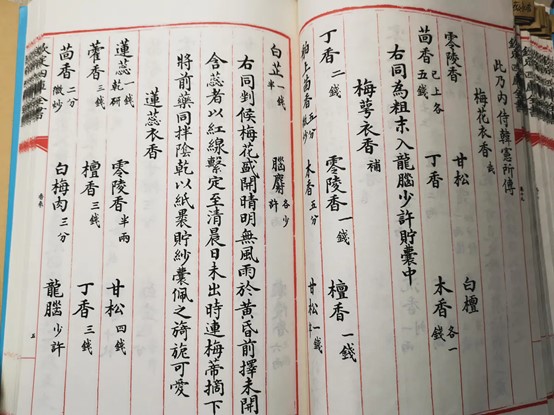 此乃內侍韓憲所傳
梅花衣香 武
零陵香 甘松 白檀
茴香 已上各五錢 丁香 木香 各一錢
右同為粗末入龍腦少許貯囊中
梅萼衣香 補
丁香 二錢 零陵香 一錢 檀香 一錢
舶上茴香 五分微炒 木香 五分 甘松 一錢
白芷 一錢半 腦麝 各少許
右同剉候梅花盛開晴明無風雨於黃昏前擇未開
含蕊者以紅線繫定至清晨日未出時連梅蒂摘下
將前藥同拌陰乾以紙裹貯紗囊佩之旖旎可愛
蓮蕊衣香
蓮蕊 一錢乾研 零陵香 半兩 甘松 四錢
藿香 三錢 檀香 三錢 丁香 三錢
茴香 二分微炒 白梅肉 三分 龍腦 少許
欽定四庫全書
五